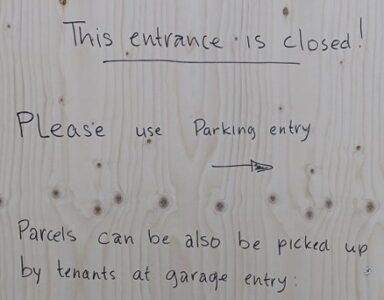 This entrance is closed!
PLease use Parking entry
Parcels can be also be picked up
by tenants at garage entry: